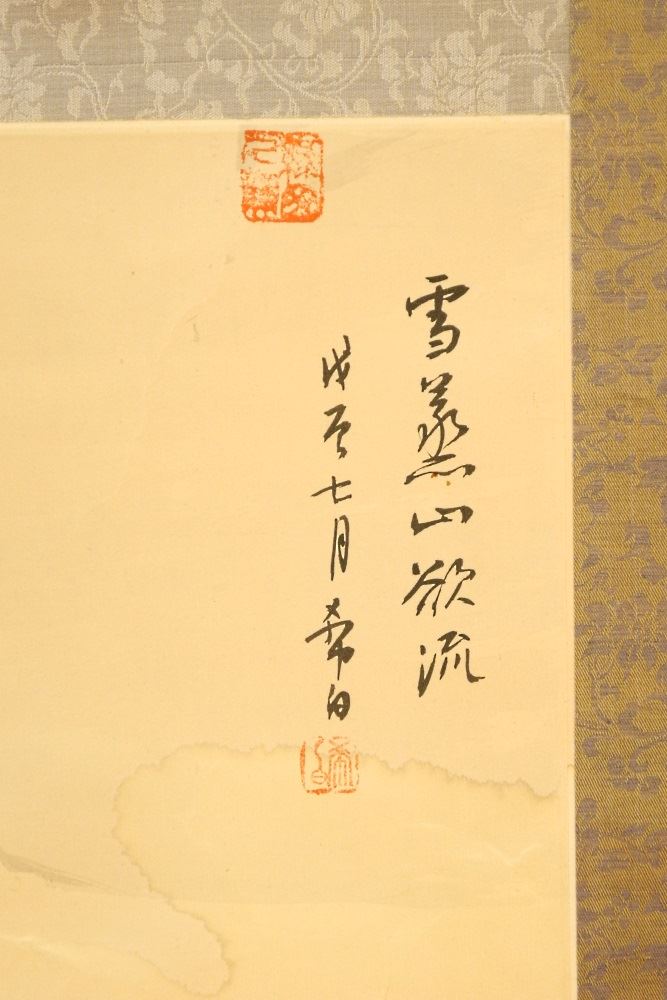 雪蒸山欲流
戊辰七月希白
希白